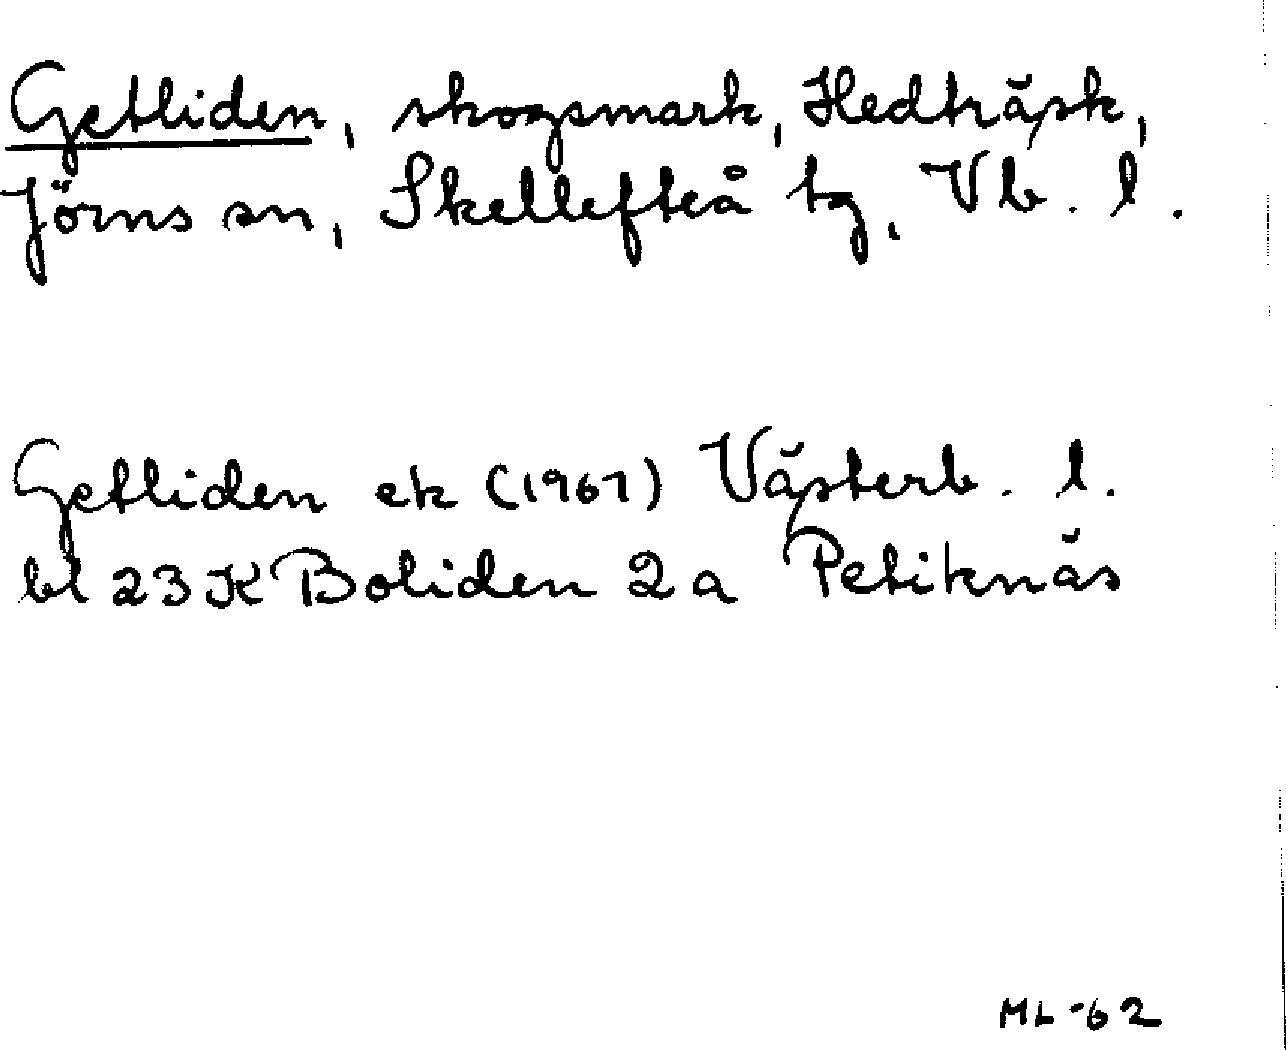 Getliden, skogsmark, Hedträsk,
Jörns sn, Skellefteå tg, Vb. l.
Getliden ek (1961) Västerb. l.
bl 23 K Boliden 2 a Petiknäs
ML -62